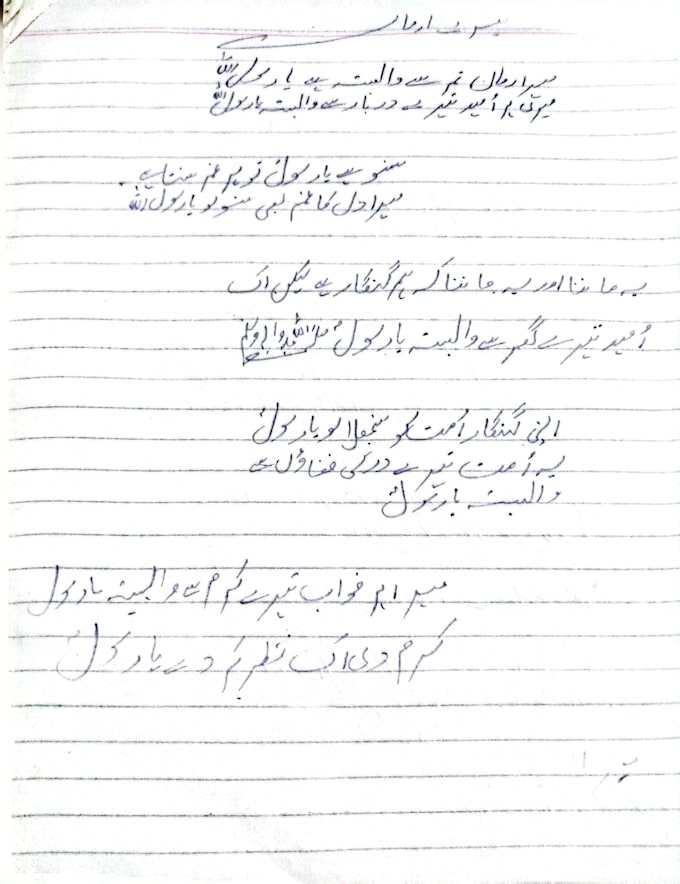 میرے ارمان
میرا ارمان تم سے وابستہ ہے یا رسول اللہ
میری ہر اُمید تیرے دربار سے وابستہ یا رسول اللہ
سنو ہے یا رسول تو ہر غم سنتا ہے۔
میرا دل کا غم بھی سنو لو یا رسول اللہ
یہ جاننا اور یہ جاننا کہ ہم گنہگار ہے لیکن اک
اُمید تیرے گھر سے وابستہ یا رسول صلی اللہ علیہ وآلہ وسلم
اپنی گنہگار اُمت کو سنبھالو یا رسول
یہ اُمت تیرے در کی فضاؤں سے
وابستہ یا رسول
میرا ہر خواب تیرے کرم سے وابستہ یا رسول
کرم دی اک نظر کر دے یا رسول